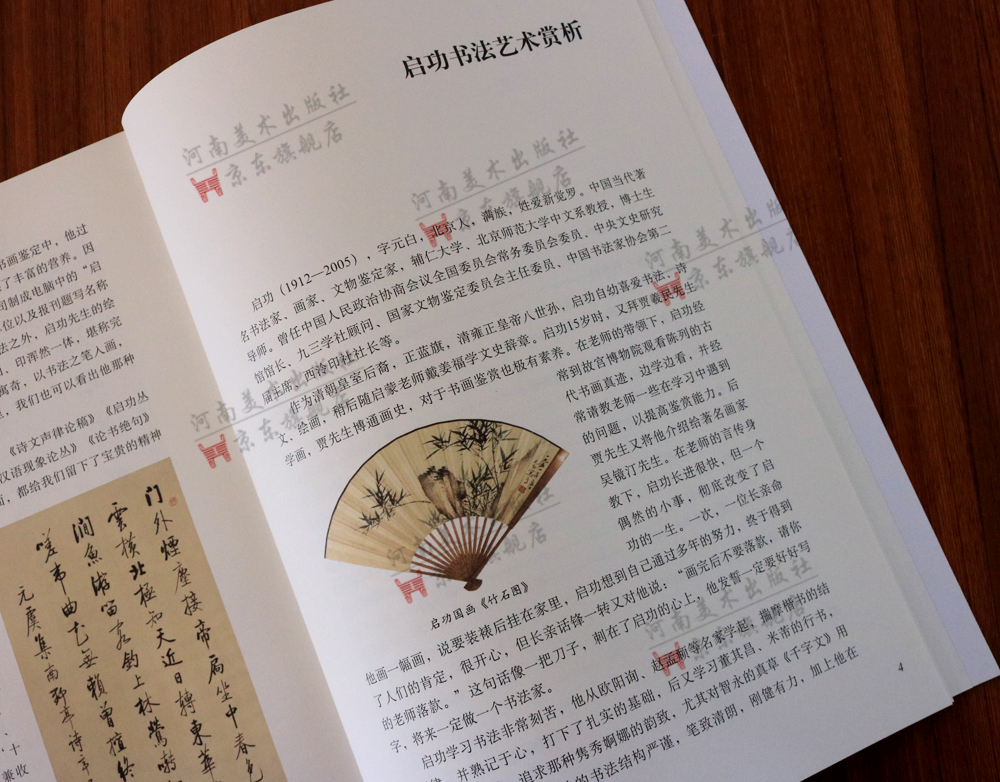 书画鉴定中，他过
了丰富的营养。因
司制成电脑中的“启
位以及报刊题写名称
法之外，启功先生的绘
印浑然一体，堪称完
寓奇，以书法之笔入画，
，我们也可以看出他那种
《诗文声律论稿》《启功丛
汉语现象论丛》《论书绝句》
都给我们留下了宝贵的精神
门外煙塵接帝局坐中春色
雲橫北極知天近日轉東華
澗魚
元虞集
十
兼收
启功书法艺术赏析
启功（1912—2005），字元白，北京人，满族，姓爱新觉罗。中国当代著
名书法家、画家、文物鉴定家，辅仁大学、北京师范大学中文系教授，博士生
导师。曾任中国人民政治协商会议全国委员会常务委员会委员、中央文史研究
馆馆长、九三学社顾问、国家文物鉴定委员会主任委员、中国书法家协会第二
届主席、西泠印社社长等。
作为清朝皇室后裔，正蓝旗，清雍正皇帝八世孙，启功自幼喜爱书法、诗
文、绘画，稍后随启蒙老师戴姜福学文史辞章。启功15岁时，又拜贾羲民先生
学画，贾先生博通画史，对于书画鉴赏也极有素养。在老师的带领下，启功经
常到故宫博物院观看陈列的古
代书画真迹，边学边看，并经
常请教老师一些在学习中遇到
的问题，以提高鉴赏能力。后
贾先生又将他介绍给著名画家
吴镜汀先生。在老师的言传身
教下，启功长进很快，但一个
偶然的小事，彻底改变了启
功的一生。一次，一位长亲命
启功国画《竹石图》
他画一幅画，说要装裱后挂在家里，启功想到自己通过多年的努力，终于得到
了人们的肯定，很开心，但长亲话锋一转又对他说：“画完后不要落款，请你
的老师落款。”这句话像一把刀子，刻在了启功的心上，他发誓一定要好好写
字，将来一定做一个书法家。
启功学习书法非常刻苦，他从欧阳询、赵孟頫等名家学起，揣摩楷书的结
律，并熟记于心，打下了扎实的基础，后又学习董其昌、米芾的行书，
追求那种隽秀婀娜的韵致，尤其对智永的真草《千字文》用
的书法结构严谨，笔致清朗，刚健有力，加上他在
4
河南美术出版社
京东旗舰店
河南美术出版社
京东旗舰店
河南美术出版社
京东旗舰店
河南美术出版社
京东旗舰店
京东旗舰店
河南美术出版社
京东旗舰店